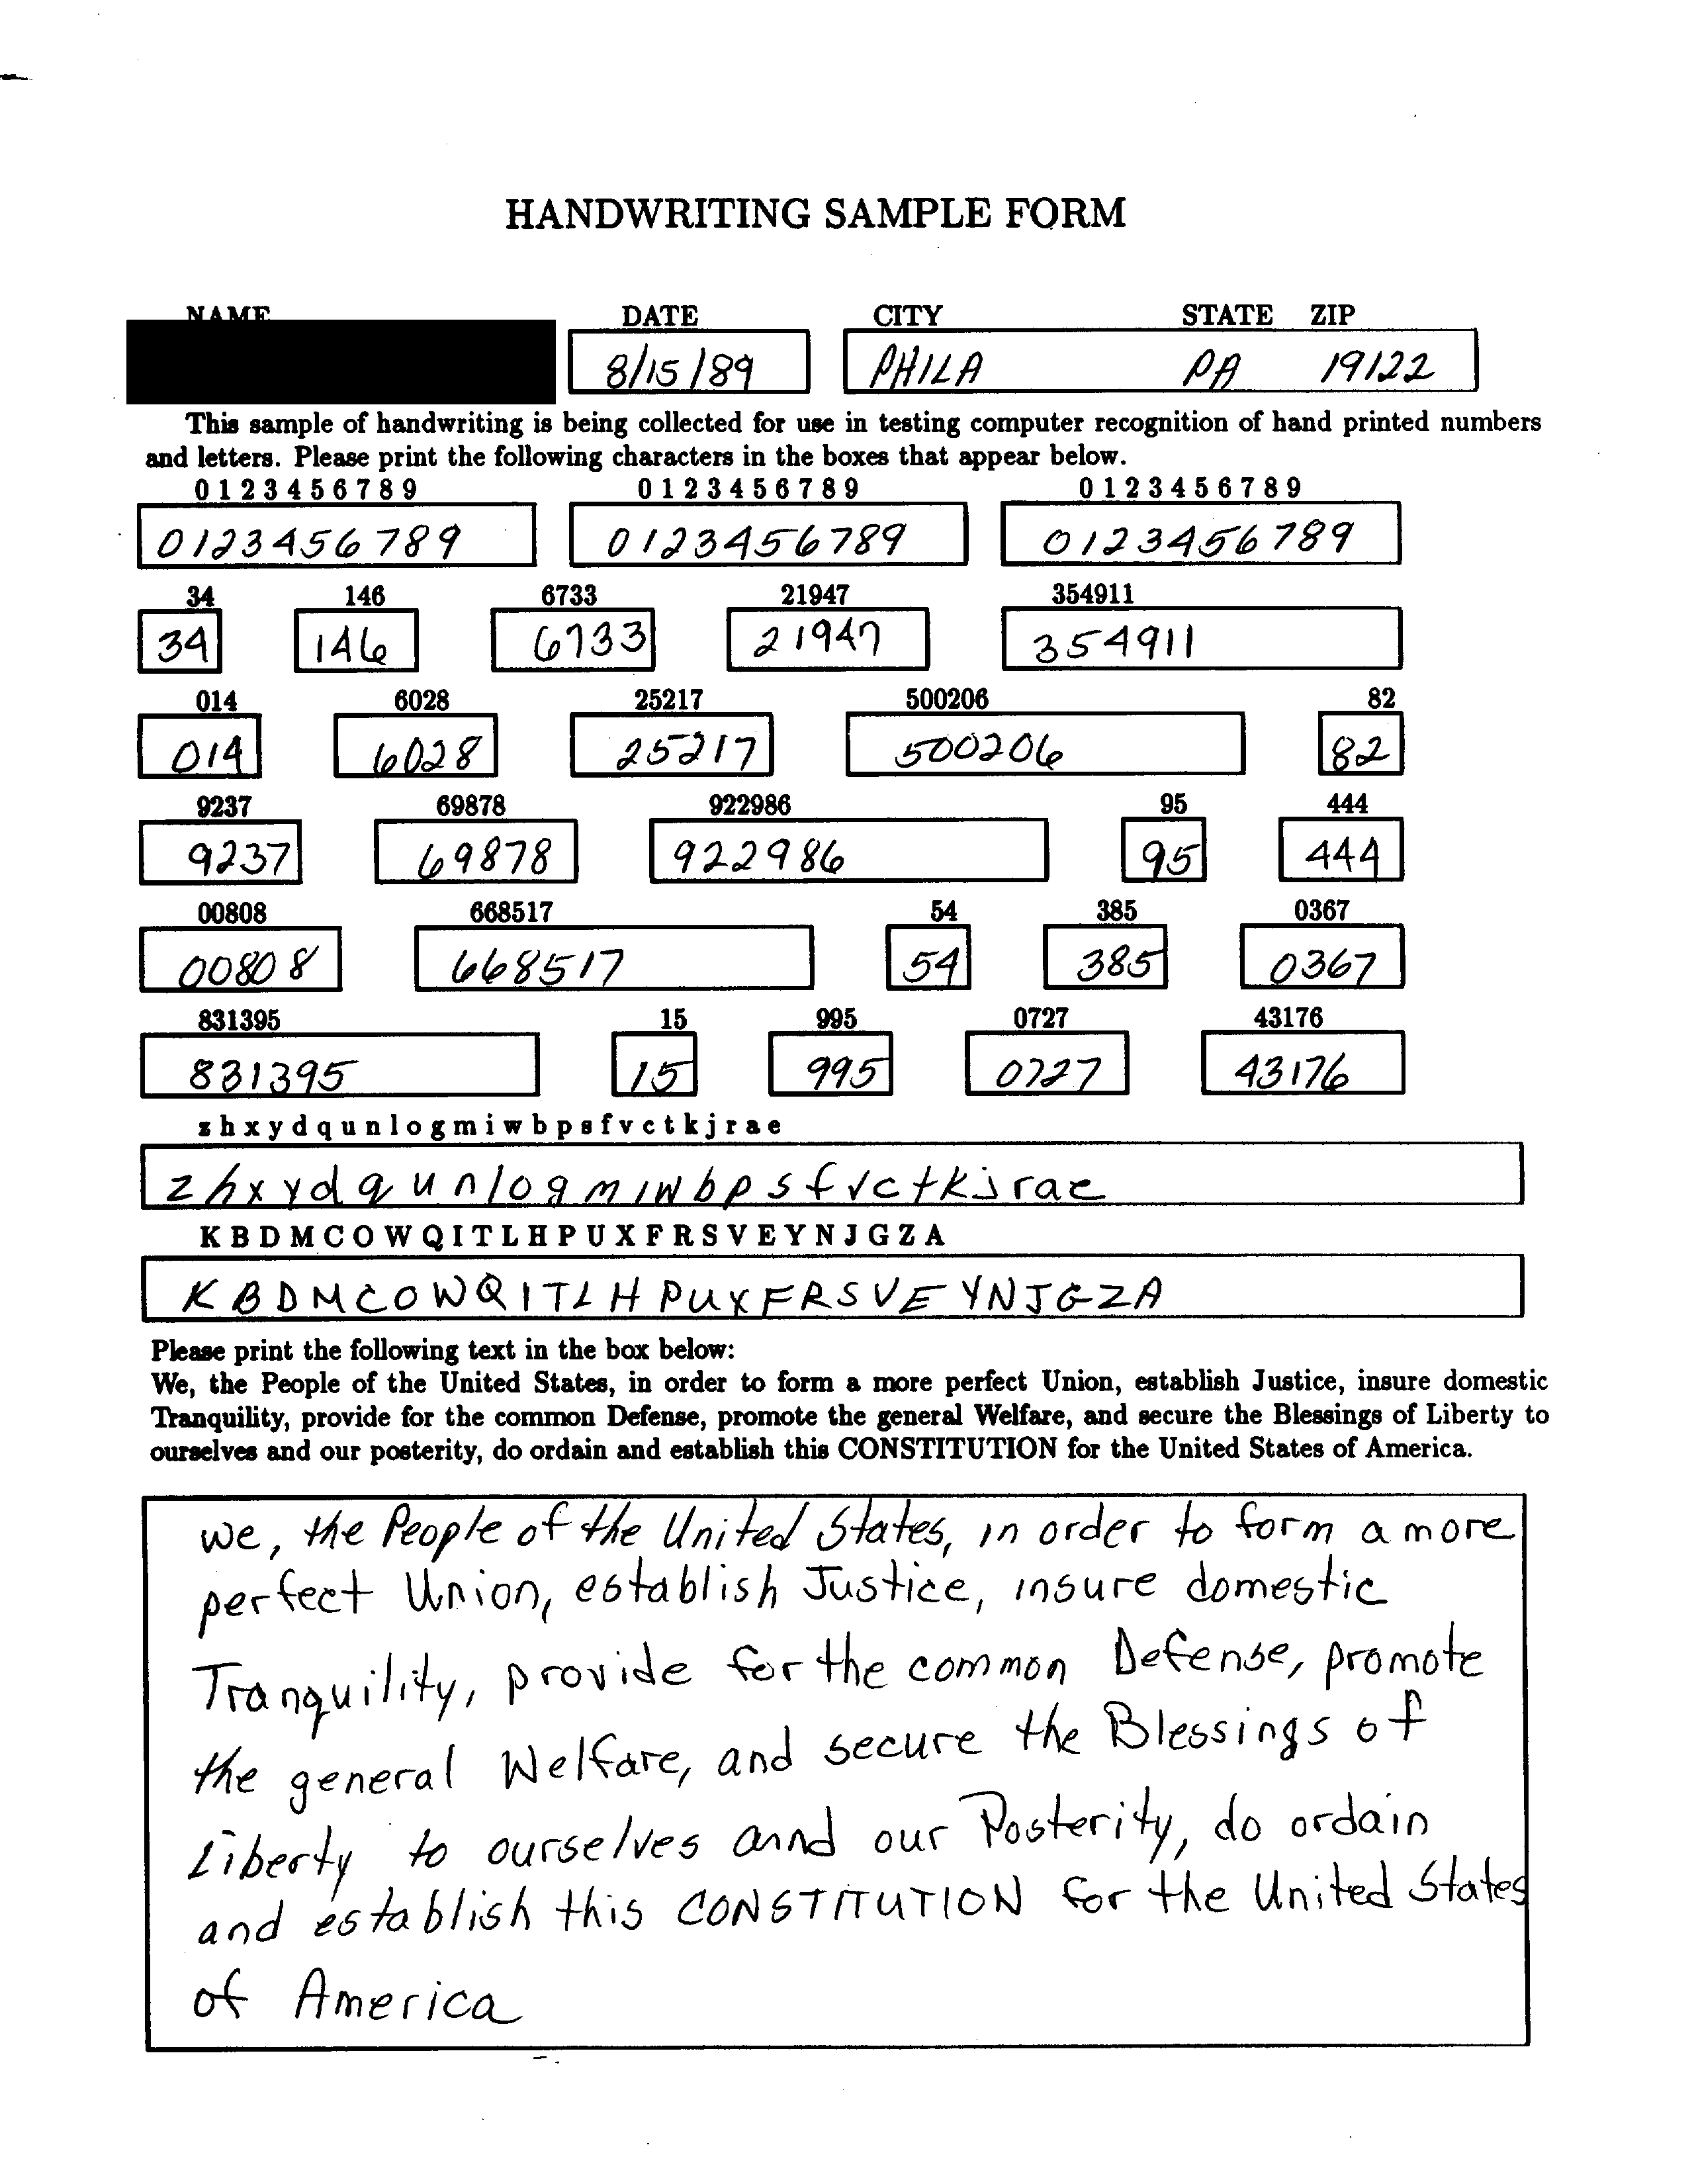 HANDWRITING SAMPLE FORM
NAME DATE CITY STATE ZIP
8/15/89 PHILA PA 19122
This sample of handwriting is being collected for use in testing computer recognition of hand printed numbers
and letters. Please print the following characters in the boxes that appear below.
0 1 2 3 4 5 6 7 8 9 0 1 2 3 4 5 6 7 8 9 0 1 2 3 4 5 6 7 8 9
0123456789 0123456789 0123456789
34 146 6733 21947 354911
34 146 6733 21947 354911
014 6028 25217 500206 82
014 6028 25217 500206 82
9237 69878 922986 95 444
9237 69878 922986 95 444
00808 668517 54 385 0367
00808 668517 54 385 0367
831395 15 995 0727 43176
831395 15 995 0727 43176
z h x y d q u n l o g m i w b p s f v c t k j r a e
z h x y d q u n l o g m i w b p s f v c t k j r a e
K B D M C O W Q I T L H P U X F R S V E Y N J G Z A
K B D M C O W Q I T L H P U X F R S V E Y N J G Z A
Please print the following text in the box below:
We, the People of the United States, in order to form a more perfect Union, establish Justice, insure domestic
Tranquility, provide for the common Defense, promote the general Welfare, and secure the Blessings of Liberty to
ourselves and our posterity, do ordain and establish this CONSTITUTION for the United States of America.
We, the People of the United States, in order to form a more
perfect Union, establish Justice, insure domestic
Tranquility, provide for the common Defense, promote
the general Welfare, and secure the Blessings of
Liberty to ourselves annd our Posterity, do ordain
and establish this CONSTITUTION for the United States
of America